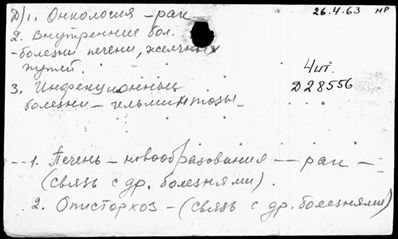 Д/1. Онкология - рак
26.4.63 НР
2. Внутренние бол.
- болезни печени, желчных
путей.
4шт.
3. Инфекционные
Д28556
болезни - гельминтозы
1. Печень - новообразования - рак -
(связь с др. болезнями).
2. Описторхоз - (связь с др. болезнями)